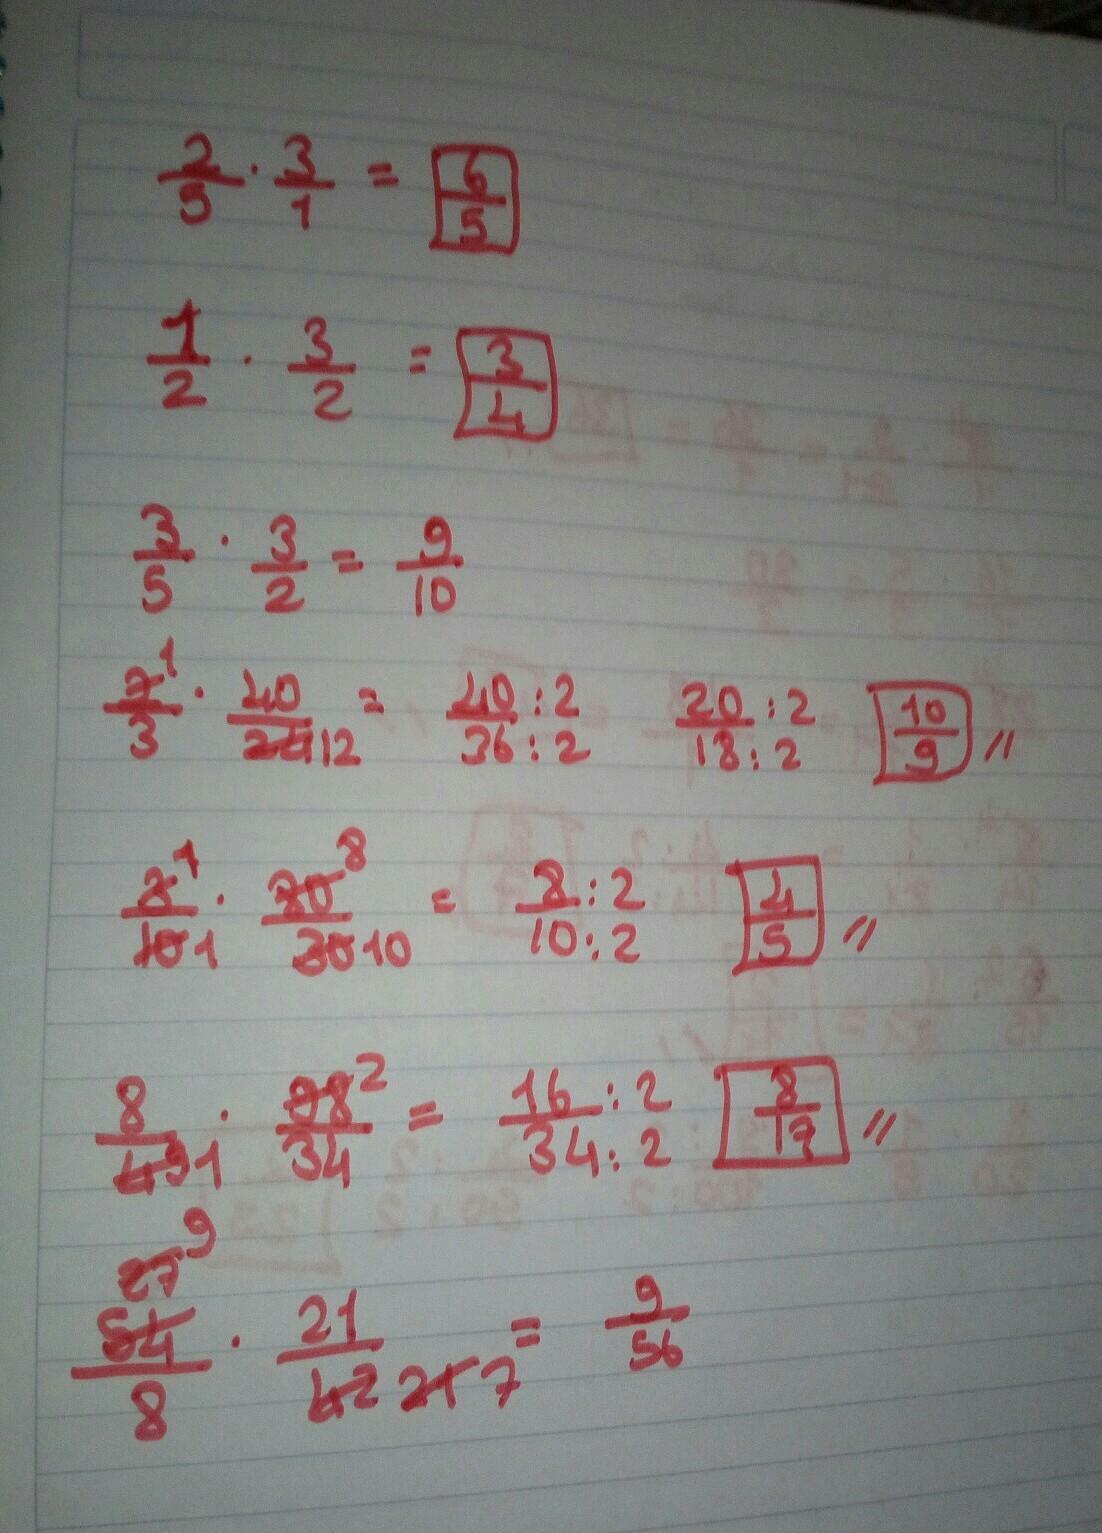 2/5 · 3/1 = 6/5
1/2 · 3/2 = 3/4
3/5 · 3/2 = 9/10
2 1/3 · 40/24 12 = 40:2/36:2 20:2/18:2 10/9 //
2 1/10 1 · 80 8/30 10 = 8:2/10:2 4/5 //
8/49 1 · 98 2/34 = 16:2/34:2 8/17 //
54 27 9/8 · 21/42 21 7 = 9/56